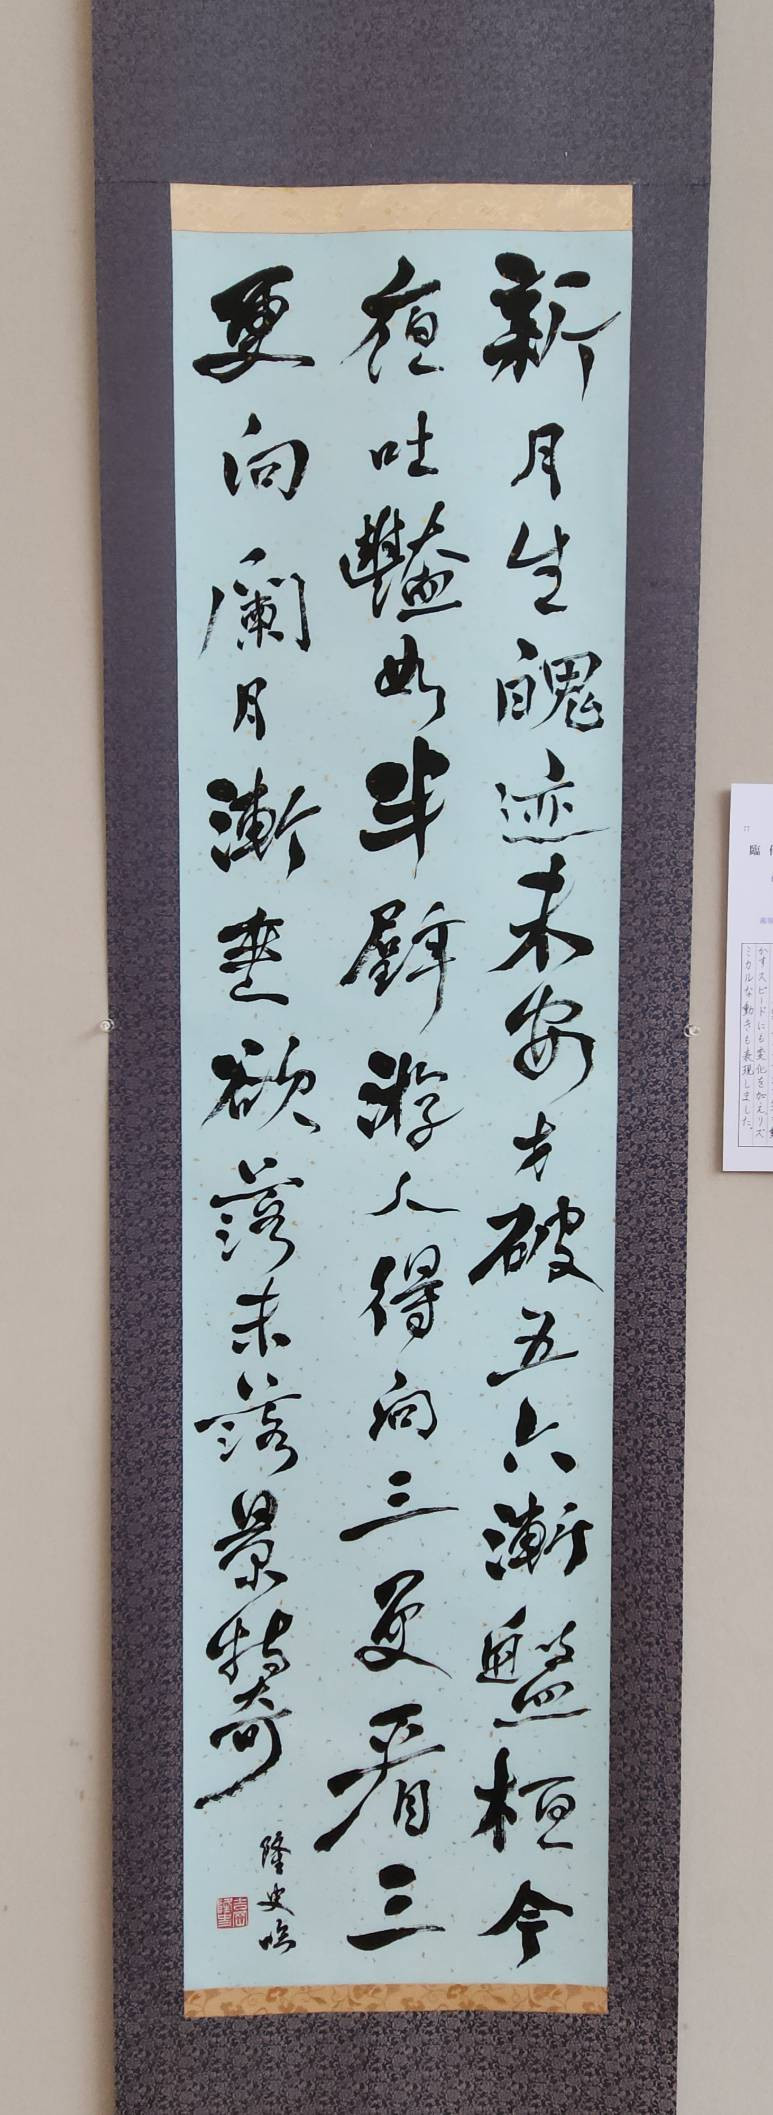 新月生魄迹未安才破五六漸盤桓今
夜吐豔如半璧游人得向三更看三
更向闌月漸垂欲落未落景特奇
隆史臨
77
臨
かすスピードにも変化を加えリズ
ミカルな動きも表現しました。